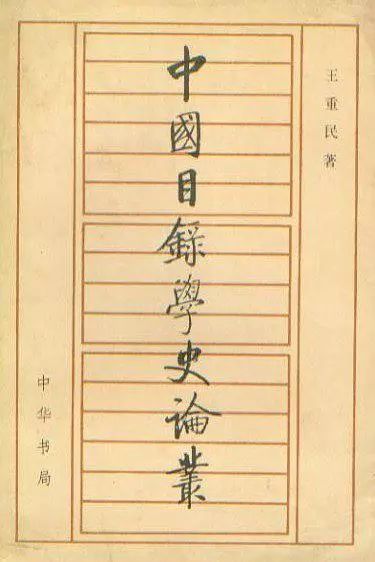 王重民著
中國目録學史論叢
中华书局